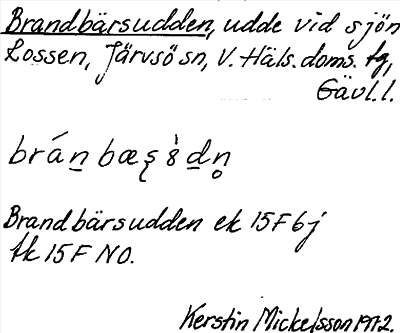 Brandbärsudden, udde vid sjön
Lossen, Järvsö sn, V. Häls. doms. tg,
Gävl. l.
brán bæʂ 8̀ dn̥
Brandbärsudden ek 15F6j
tk 15F NO.
Kerstin Mickelsson 1972.